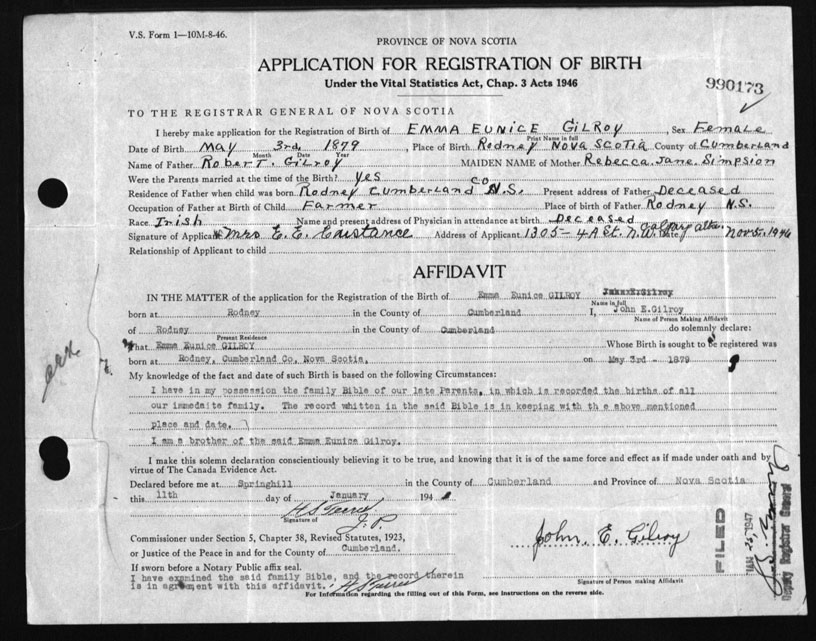 V.S. Form 1—10M-8-46.
PROVINCE OF NOVA SCOTIA
APPLICATION FOR REGISTRATION OF BIRTH
Under the Vital Statistics Act, Chap. 3 Acts 1946
990173
TO THE REGISTRAR GENERAL OF NOVA SCOTIA
I hereby make application for the Registration of Birth of EMMA EUNICE GILROY, Sex Female
Print Name in full
Date of Birth May 3rd, 1879, Place of Birth Rodney NOVA SCOTIA County of Cumberland
Month Date Year
Name of Father Robert. Gilroy MAIDEN NAME of Mother Rebecca. Jane. Simpsion
Were the Parents married at the time of the Birth? yes
Residence of Father when child was born Rodney Cumberland Co N.S. Present address of Father Deceased
Occupation of Father at Birth of Child Farmer Place of birth of Father Rodney N.S.
Race Irish Name and present address of Physician in attendance at birth Deceased
Signature of Applicant Mrs E. E. Address of Applicant 1305-4A St. N.W. Calgary alta. Date Nov 5, 1946
Relationship of Applicant to child
AFFIDAVIT
IN THE MATTER of the application for the Registration of the Birth of Emma Eunice GILROY John E.Gilroy
Name in full
born at Rodney in the County of Cumberland I, John E.Gilroy
Name of Person Making Affidavit
of Rodney in the County of Cumberland do solemnly declare:
Present Residence
That Emma Eunice GILROY Whose Birth is sought to be registered was
born at Rodney, Cumberland Co, Nova Scotia. on May 3rd - 1879
My knowledge of the fact and date of such Birth is based on the following Circumstances:
I have in my possession the family Bible of our late Parents, in which is recorded the births of all
our immedaite family. The record whitten in the said Bible is in keeping with th e above mentioned
place and date.
I am a brother of the said Emma Eunice Gilroy.
I make this solemn declaration conscientiously believing it to be true, and knowing that it is of the same force and effect as if made under oath and by
virtue of The Canada Evidence Act.
Declared before me at Springhill in the County of Cumberland and Province of Nova Scotia
this 11th day of January 194
Signature of
J.P.
Commissioner under Section 5, Chapter 38, Revised Statutes, 1923,
or Justice of the Peace in and for the County of Cumberland.
John. E. Gilroy
Signature of Person making Affidavit
If sworn before a Notary Public affix seal.
I have examined the said family Bible, and the record therein
is in agreement with this affidavit.
For Information regarding the filling out of this Form, see instructions on the reverse side.
FILED
JAN 25, 1947
Deputy Registrar General